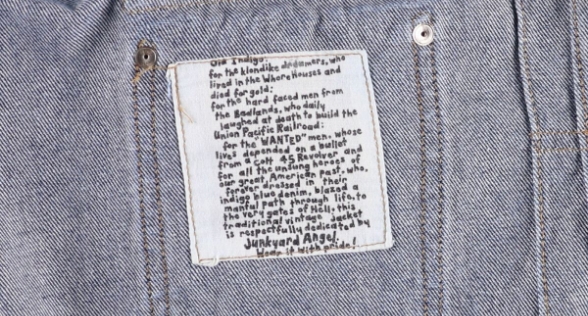 Old Indigo:
for the klondike dreamers, who
lived in the Whore Houses and
died for gold:
for the hard faced men from
the Badlands, who daily
laughed at death to build the
Union Pacific Railroad:
for the "WANTED" men, whose
lives depended on a bullet
from a Colt 45 Revolver and
for all the unsung heroes of
our great American past, who,
forever dressed in their
indigo blue denim, blazed a
manful path through life, to
the very gates of Hell, this
traditional vintage Jacket
is respectfully dedicated by
Junkyard Angel.
Wear it with pride!